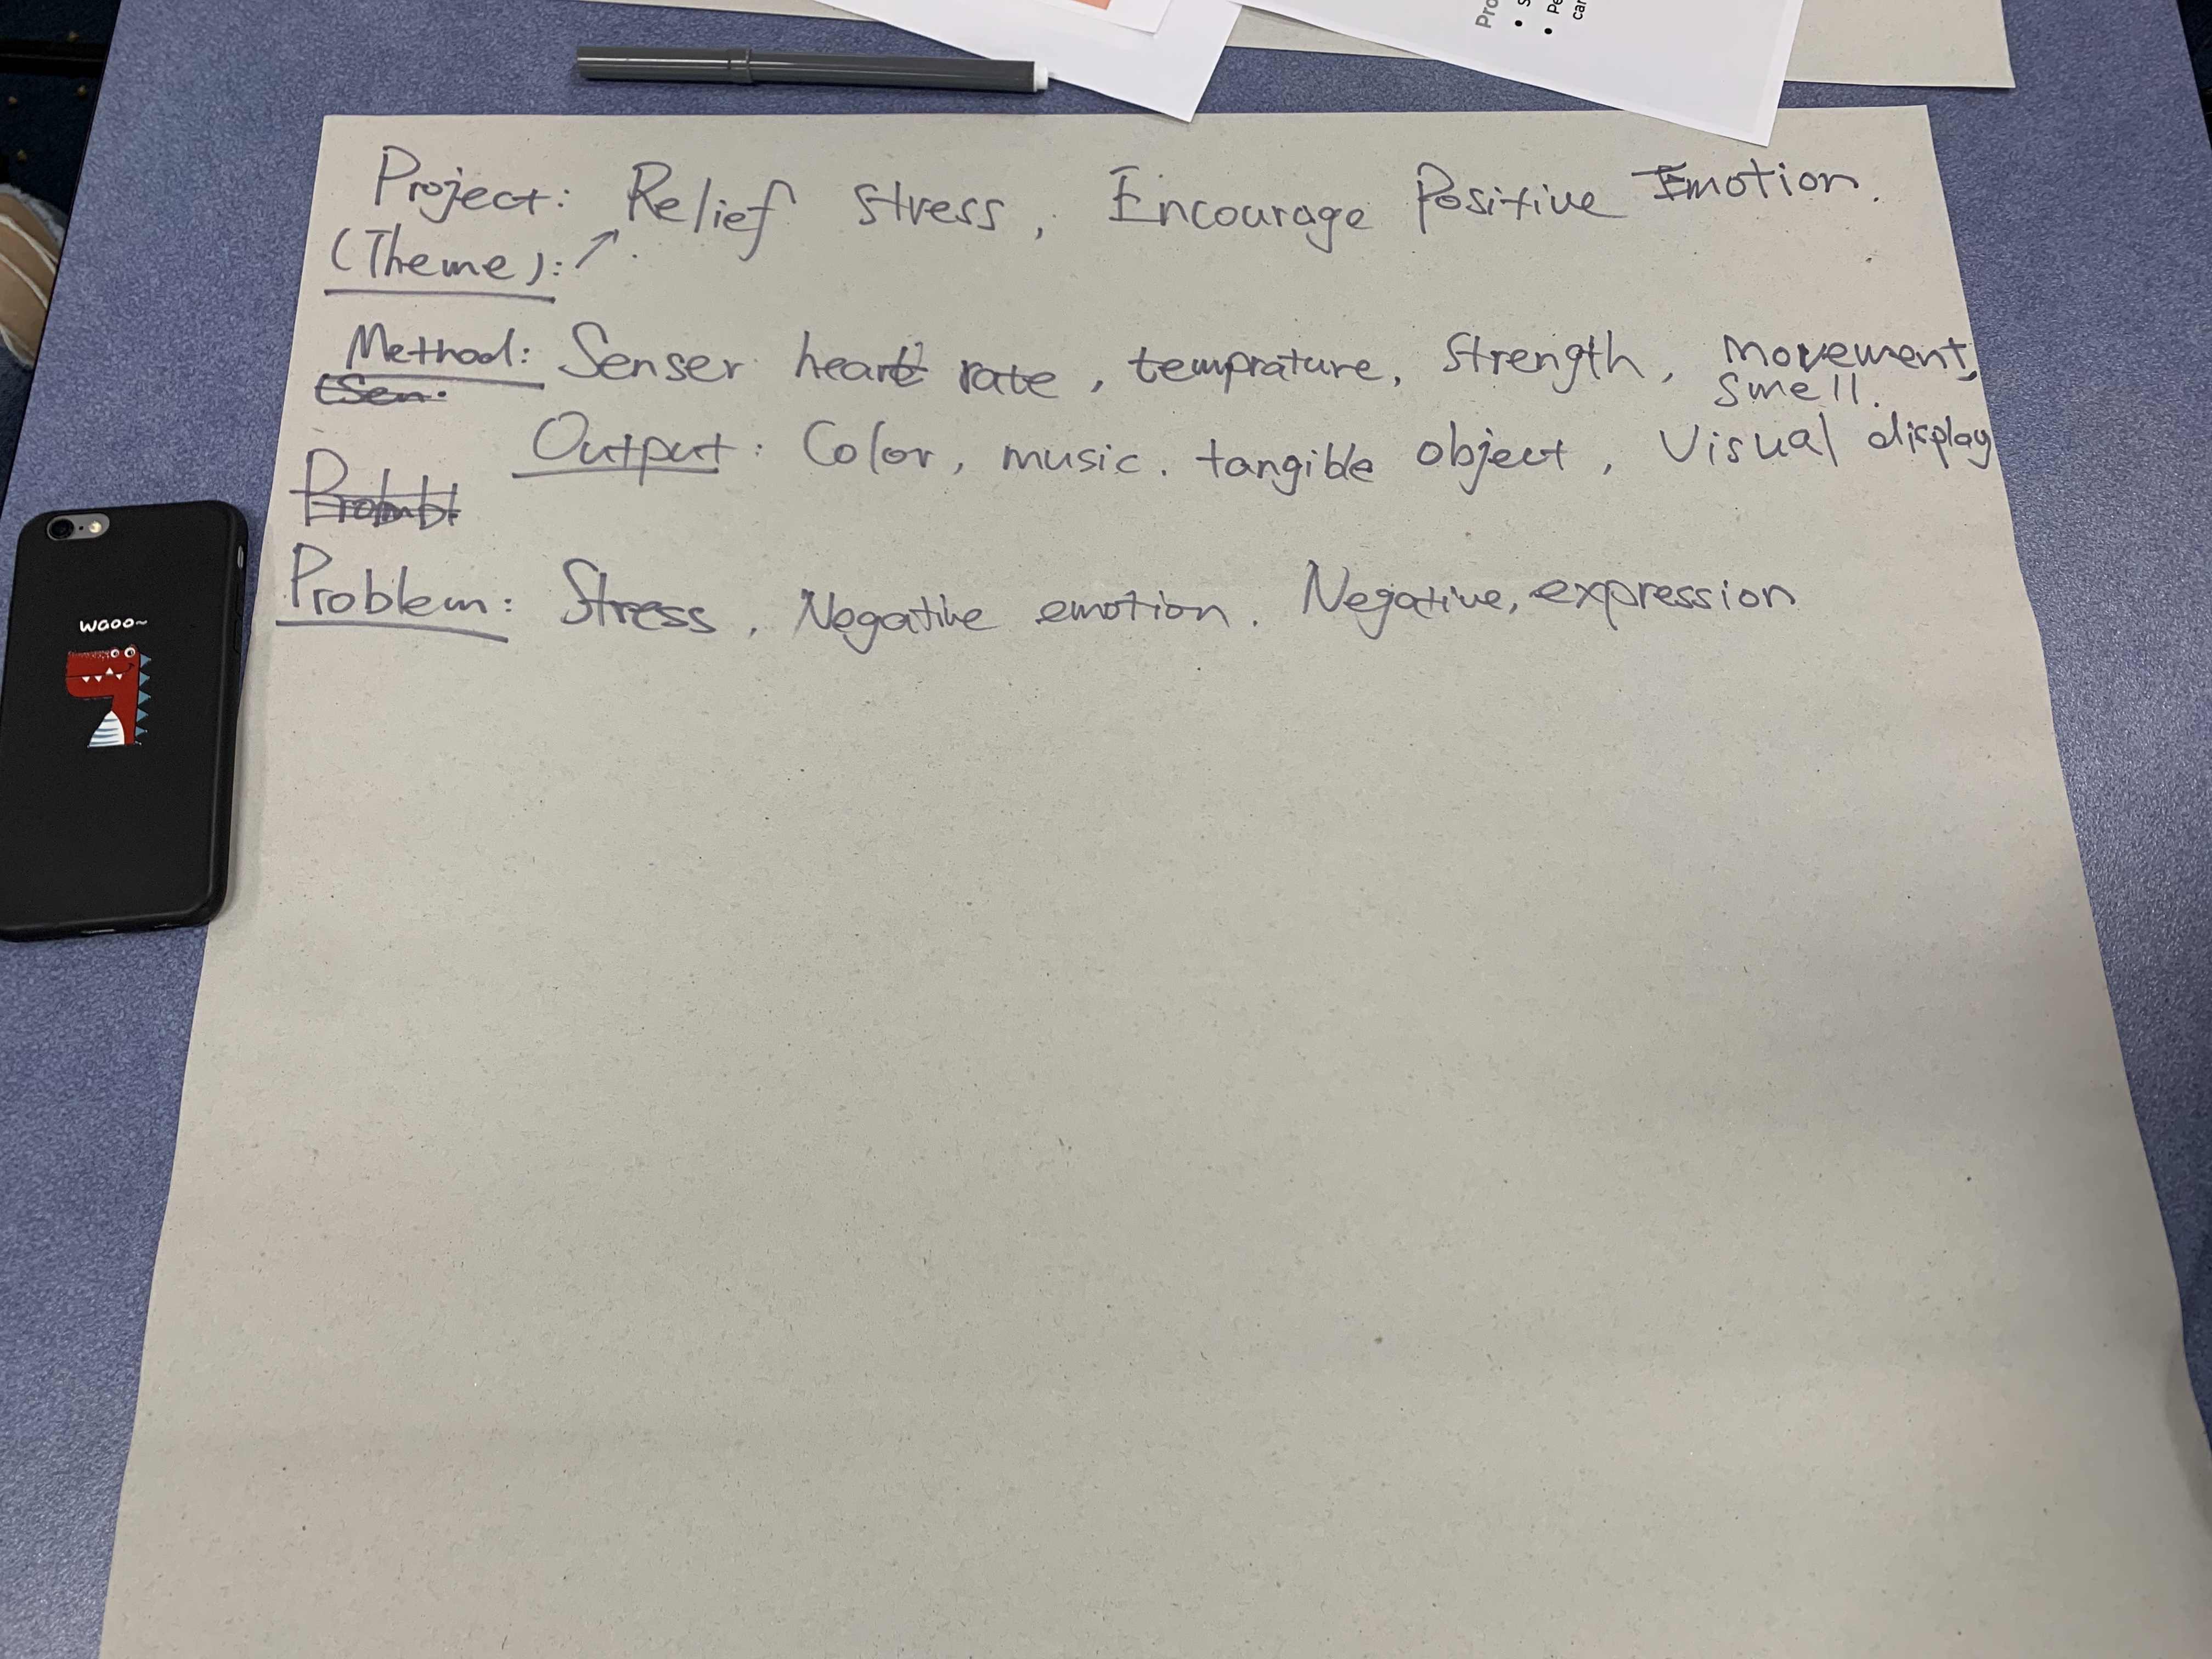 Project: Relief stress, Encourage Positive Emotion.
(Theme): ↗
Method: Senser heart rate, temprature, strength, movement,
smell.
Output: Color, music. tangible object, Visual display
Problem: Stress, Negative emotion. Negative, expression
waoo~
Pro
• S
• Pe
car